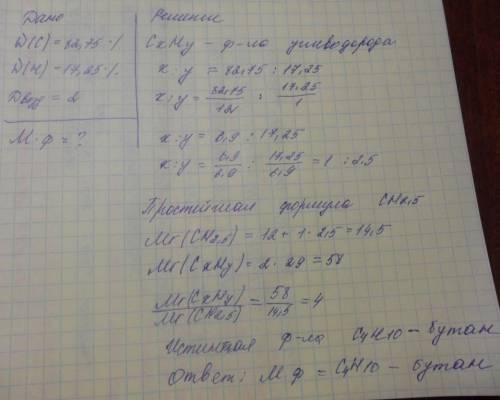 Дано
W(C) = 82,75 %
W(H) = 17,25 %.
Dвозд = 2
М.ф = ?
Решение
CxHy – ф-ла углеводорода
x : y = 82,75 : 17,25
x : y = 82,75/12 : 17,25/1
x : y = 6,9 : 17,25
x : y = 6,9/6,9 : 17,25/6,9 = 1 : 2,5
Простейшая формула CH2,5
Mr(CH2,5) = 12 + 1 · 2,5 = 14,5
Mr(CxHy) = 2 · 29 = 58
Mr(CxHy)/Mr(CH2,5) = 58/14,5 = 4
Истинная ф-ла C4H10 – бутан
Ответ: М.ф = C4H10 – бутан